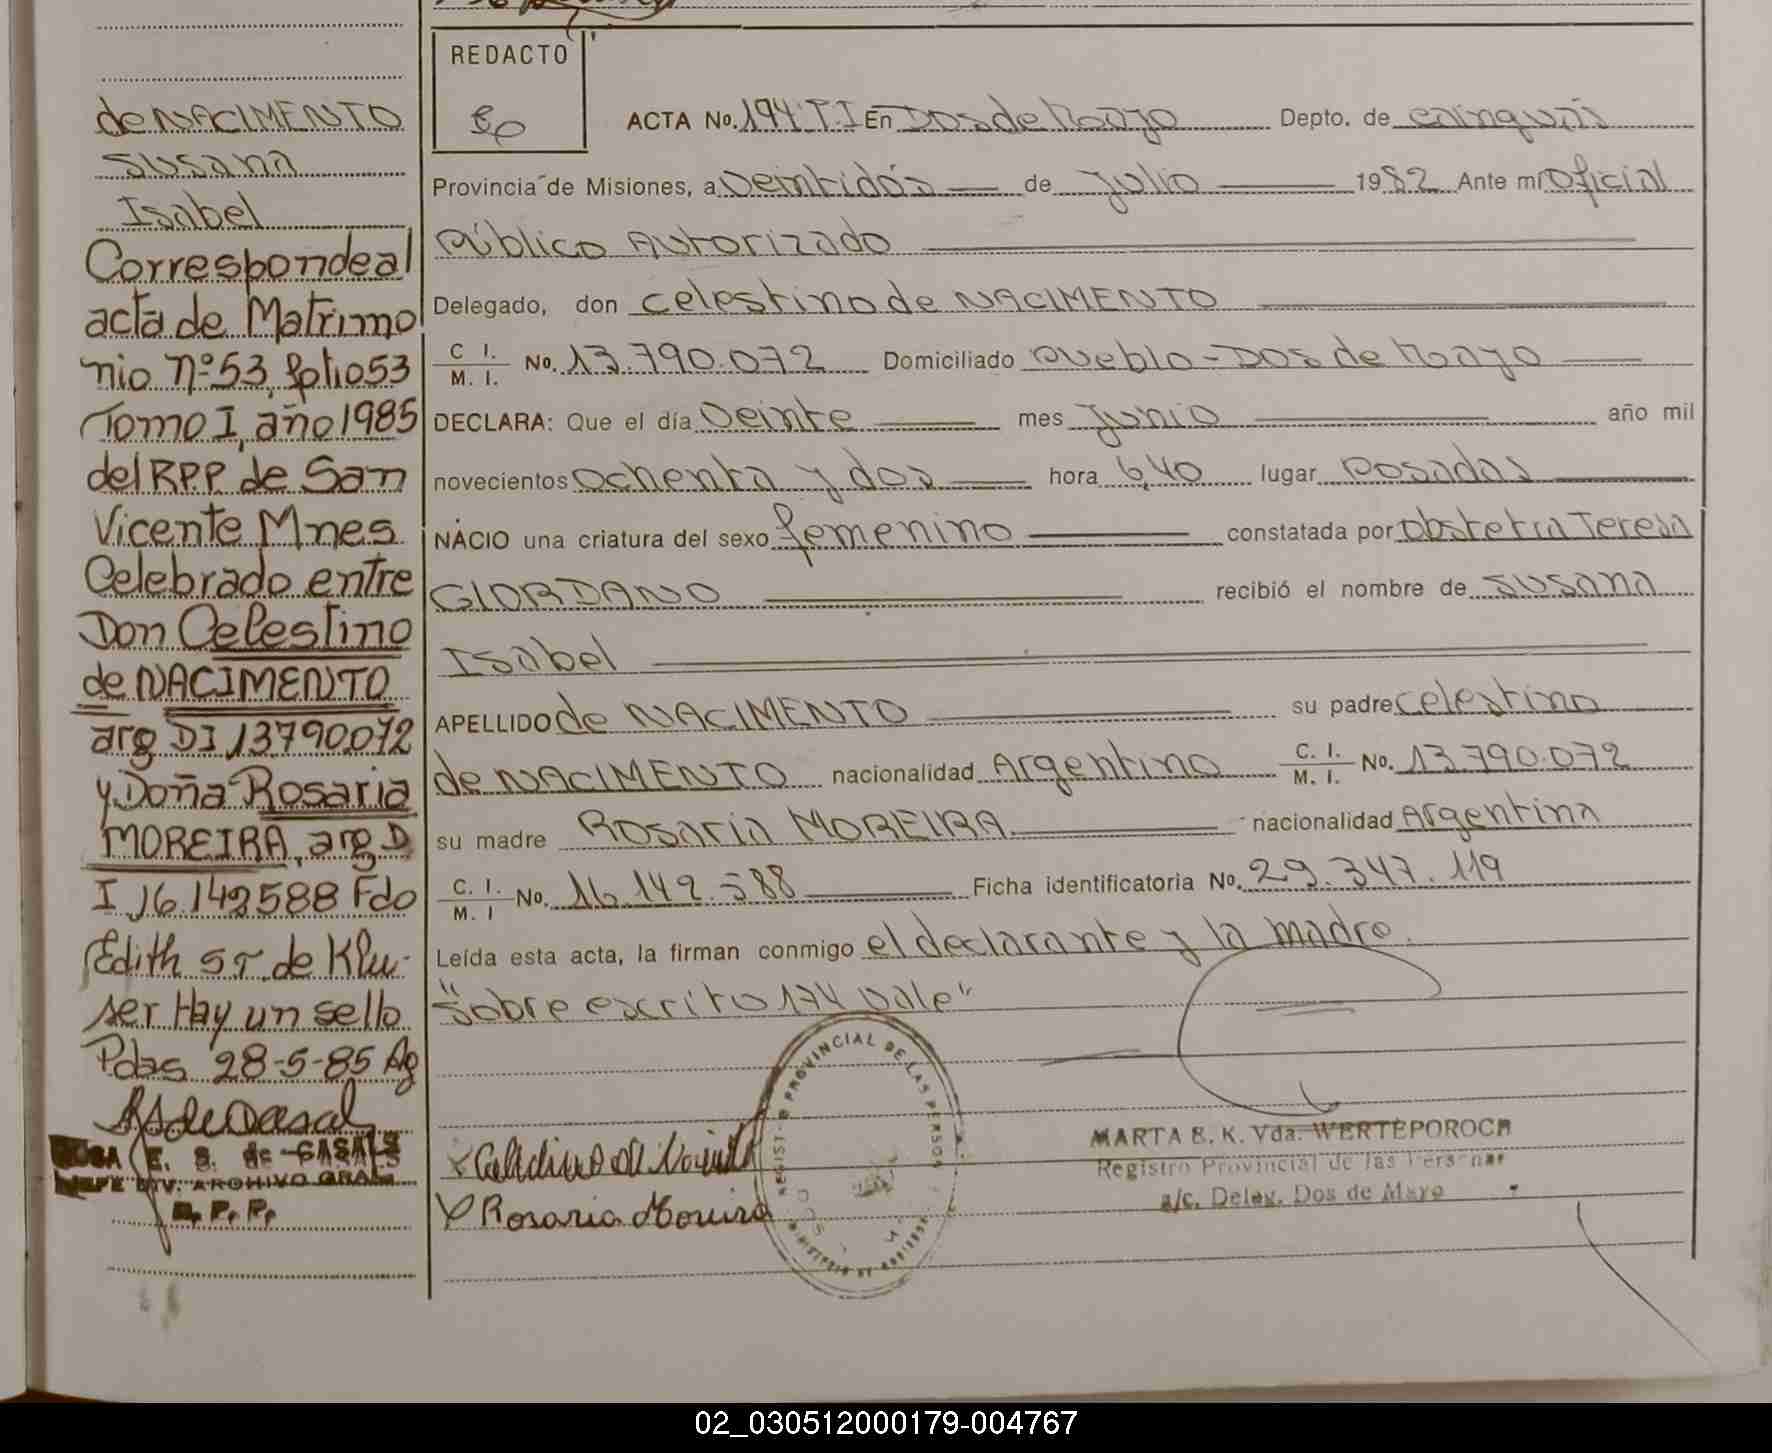 de NACIMENTO
Susana
Isabel
Corresponde al
acta de Matrimo
nio Nº 53, folio 53
Tomo I, año 1985
del R.P.P. de San
Vicente Mnes
Celebrado entre
Don Celestino
de NACIMENTO
arg DI 13790072
y Doña Rosaria
MOREIRA, arg D
I 16.142588 Fdo
Edith S T. de Klu-
ser Hay un sello
Pdas 28-5-85 Ag
E. S. de CASALS
DIV. ARCHIVO GRAL.
R. P. P.
REDACTO
ACTA No. 194 T.I En Dos de Mayo Depto. de Cainguás
Provincia de Misiones, a veintidós de Julio 1982 Ante mí Oficial
Público Autorizado
Delegado, don Celestino de NACIMENTO
C. I. M. I. No. 13.790.072 Domiciliado Pueblo - Dos de Mayo
DECLARA: Que el día Veinte mes Junio año mil
novecientos Ochenta y dos hora 6,40 lugar Posadas
NACIO una criatura del sexo femenino constatada por Obstetra Teresa
GIORDANO recibió el nombre de Susana
Isabel
APELLIDO de NACIMENTO su padre Celestino
de NACIMENTO nacionalidad Argentino C. I. M. I. No. 13.790.072
su madre Rosaria MOREIRA nacionalidad Argentina
C. I. M. I No. 16.142.588 Ficha identificatoria No. 29.347.119
Leída esta acta, la firman conmigo el declarante y la madre.
"Sobre escrito 194 Vale"
Rosaria Moreira
REGISTRO PROVINCIAL DE LAS PERSONAS
MINISTERIO DE GOBIERNO
MARTA E. K. Vda. WERTEPOROCH
Registro Provincial de las Personas
a/c. Deleg. Dos de Mayo
02_030512000179-004767